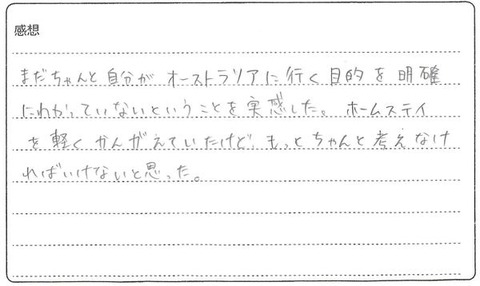 感想
まだちゃんと自分がオーストラリアに行く目的を明確
にわかっていないということを実感した。ホームステイ
を軽くかんがえていたけど、もっとちゃんと考えなけ
ればいけないと思った。